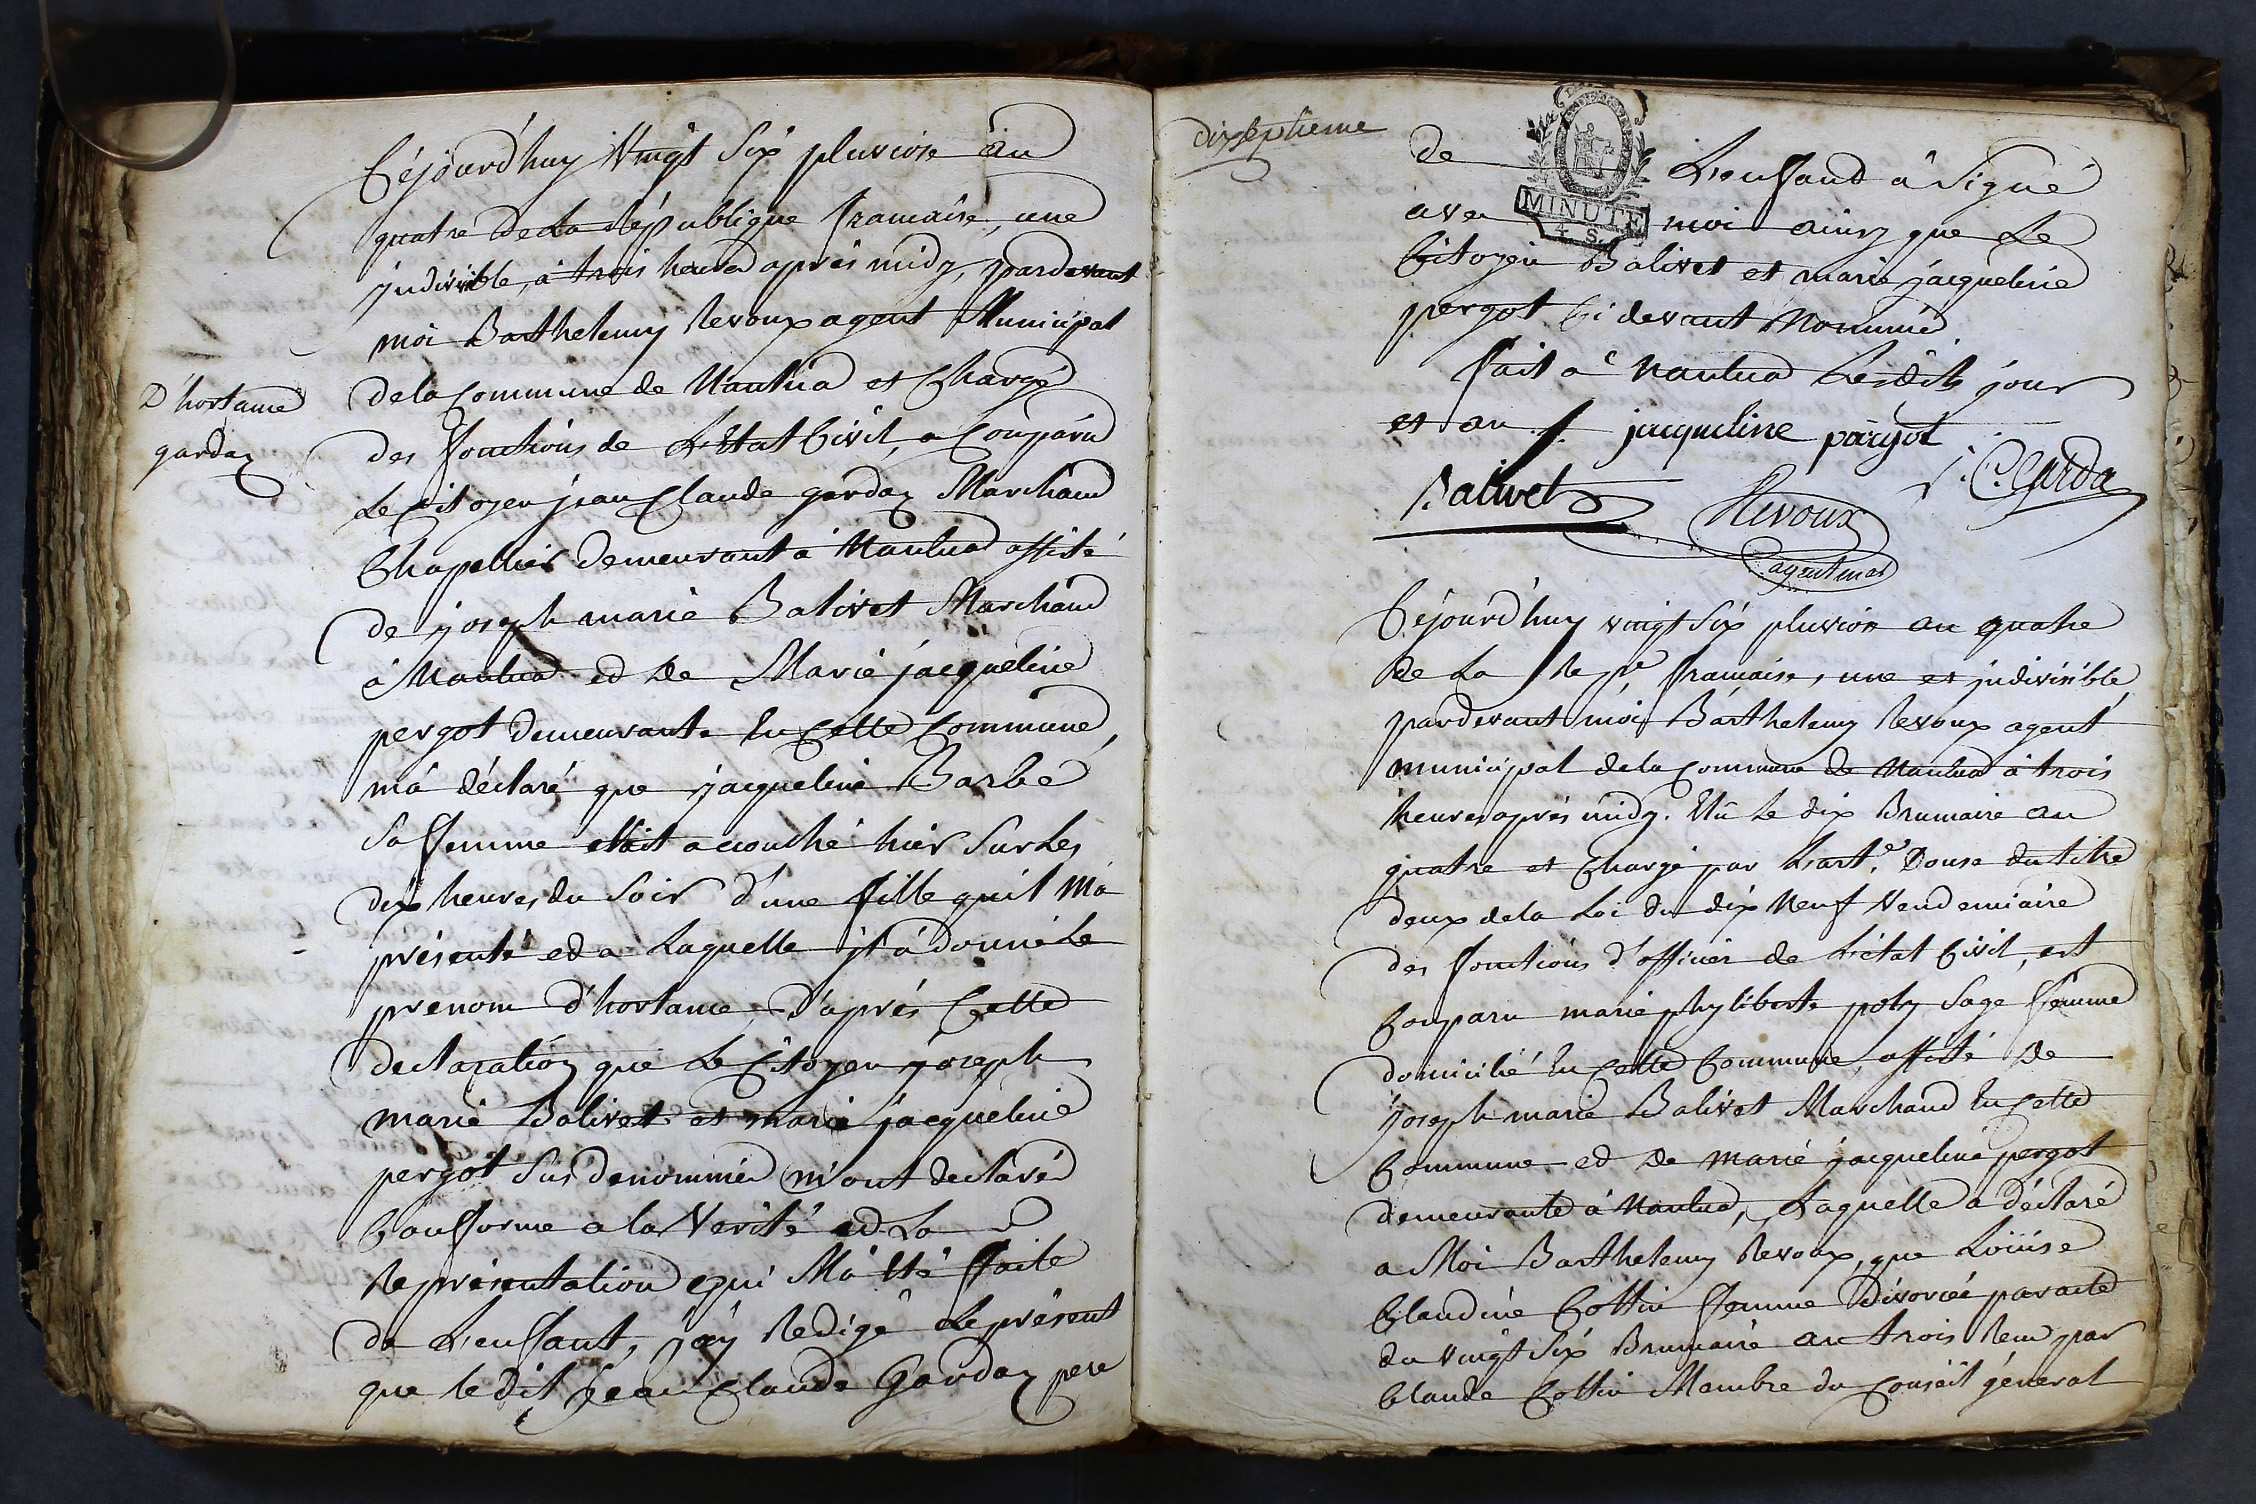 Céjourd'huy Vingt Six pluviose än
quatre de la république francaise, une
jndivisible, à trois heures après midy, pardevant
moi Barthelemy Revoux agent Municipal
D'hortance
gardaz
de la Commune de Nantua et Chargé
des fonctions de L'Etat Civil, a Comparu
Le Citoyen jean Claude gardaz Marchand
Chapellier demeurant à Nantua assisté
de joseph marie Balivet Marchand
à Nantua et de Marie jacqueline
pergot demeurante En Cette Commune,
m'à déclaré que jacqueline Barbe
Sa femme étoit accouché hier Sur Les
dix heures du Soir d'une fille quil M'a
présenté et a Laquelle jl à donné Le
prenom d'hortance, D'aprés Cette
declaration que Le Citoyen joseph
marie Balivet et marie jacqueline
pergot Sus denommés m'ont declaré
Conforme a la Verité et La
Représentation qui M'à Eté faite
de L'enfant, j'ay Redigé Le présent
que le dit Jean Claude Gardaz pere
dixseptieme
de L'enfand â Signé
MINUTE
4. S.
avec moi ainsy que Le
Citoyen Balivet et marie jacqueline
pergot Ci devant Nommé
fait a Nantua Lesdits jour
et an ./. jacqueline pargot
J. C. Garda
Balivet Revoux
agent mal
Céjourd'huy vingt Six pluviose an quatre
de La Repe francaise, une et jndivisible
pardevant moi Barthelemy Revoux agent
municipal de la Commune de Nantua à trois
heures après midy. Elû Le dix Brumaire an
quatre et Chargé par L'arte. Douse du titre
deux de la Loi du dix Neuf Vendemiaire
des fonctions d'officier de L'état Civil, est
Comparu marie phyliberte poly Sage femme
domicilié En Cette Commune, assisté de
joseph marie Balivet Marchand En Cette
Commune et de marie jacqueline pergot
demeurante à Nantua, Laquelle a déclaré
a Moi Barthelemy Revoux, que Louise
Claudine Cottin femme Divorcée par acte
du vingt Six Brumaire an trois Reçu par
Claude Cottin Membre du Conseil général